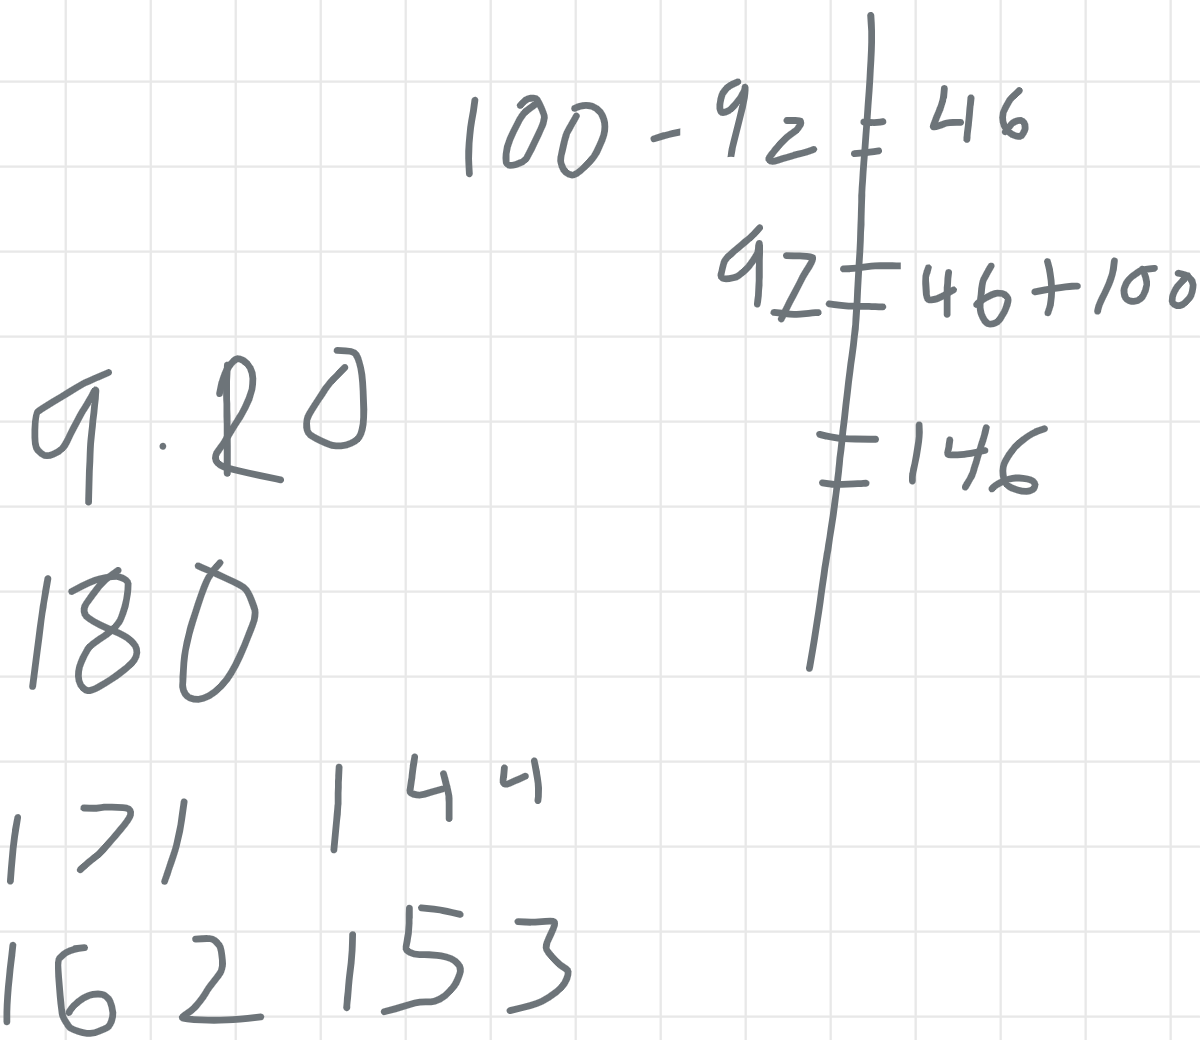 100 - 92 = 46
92 = 46 + 100
= 146
9 . 20
180
171 144
162 153